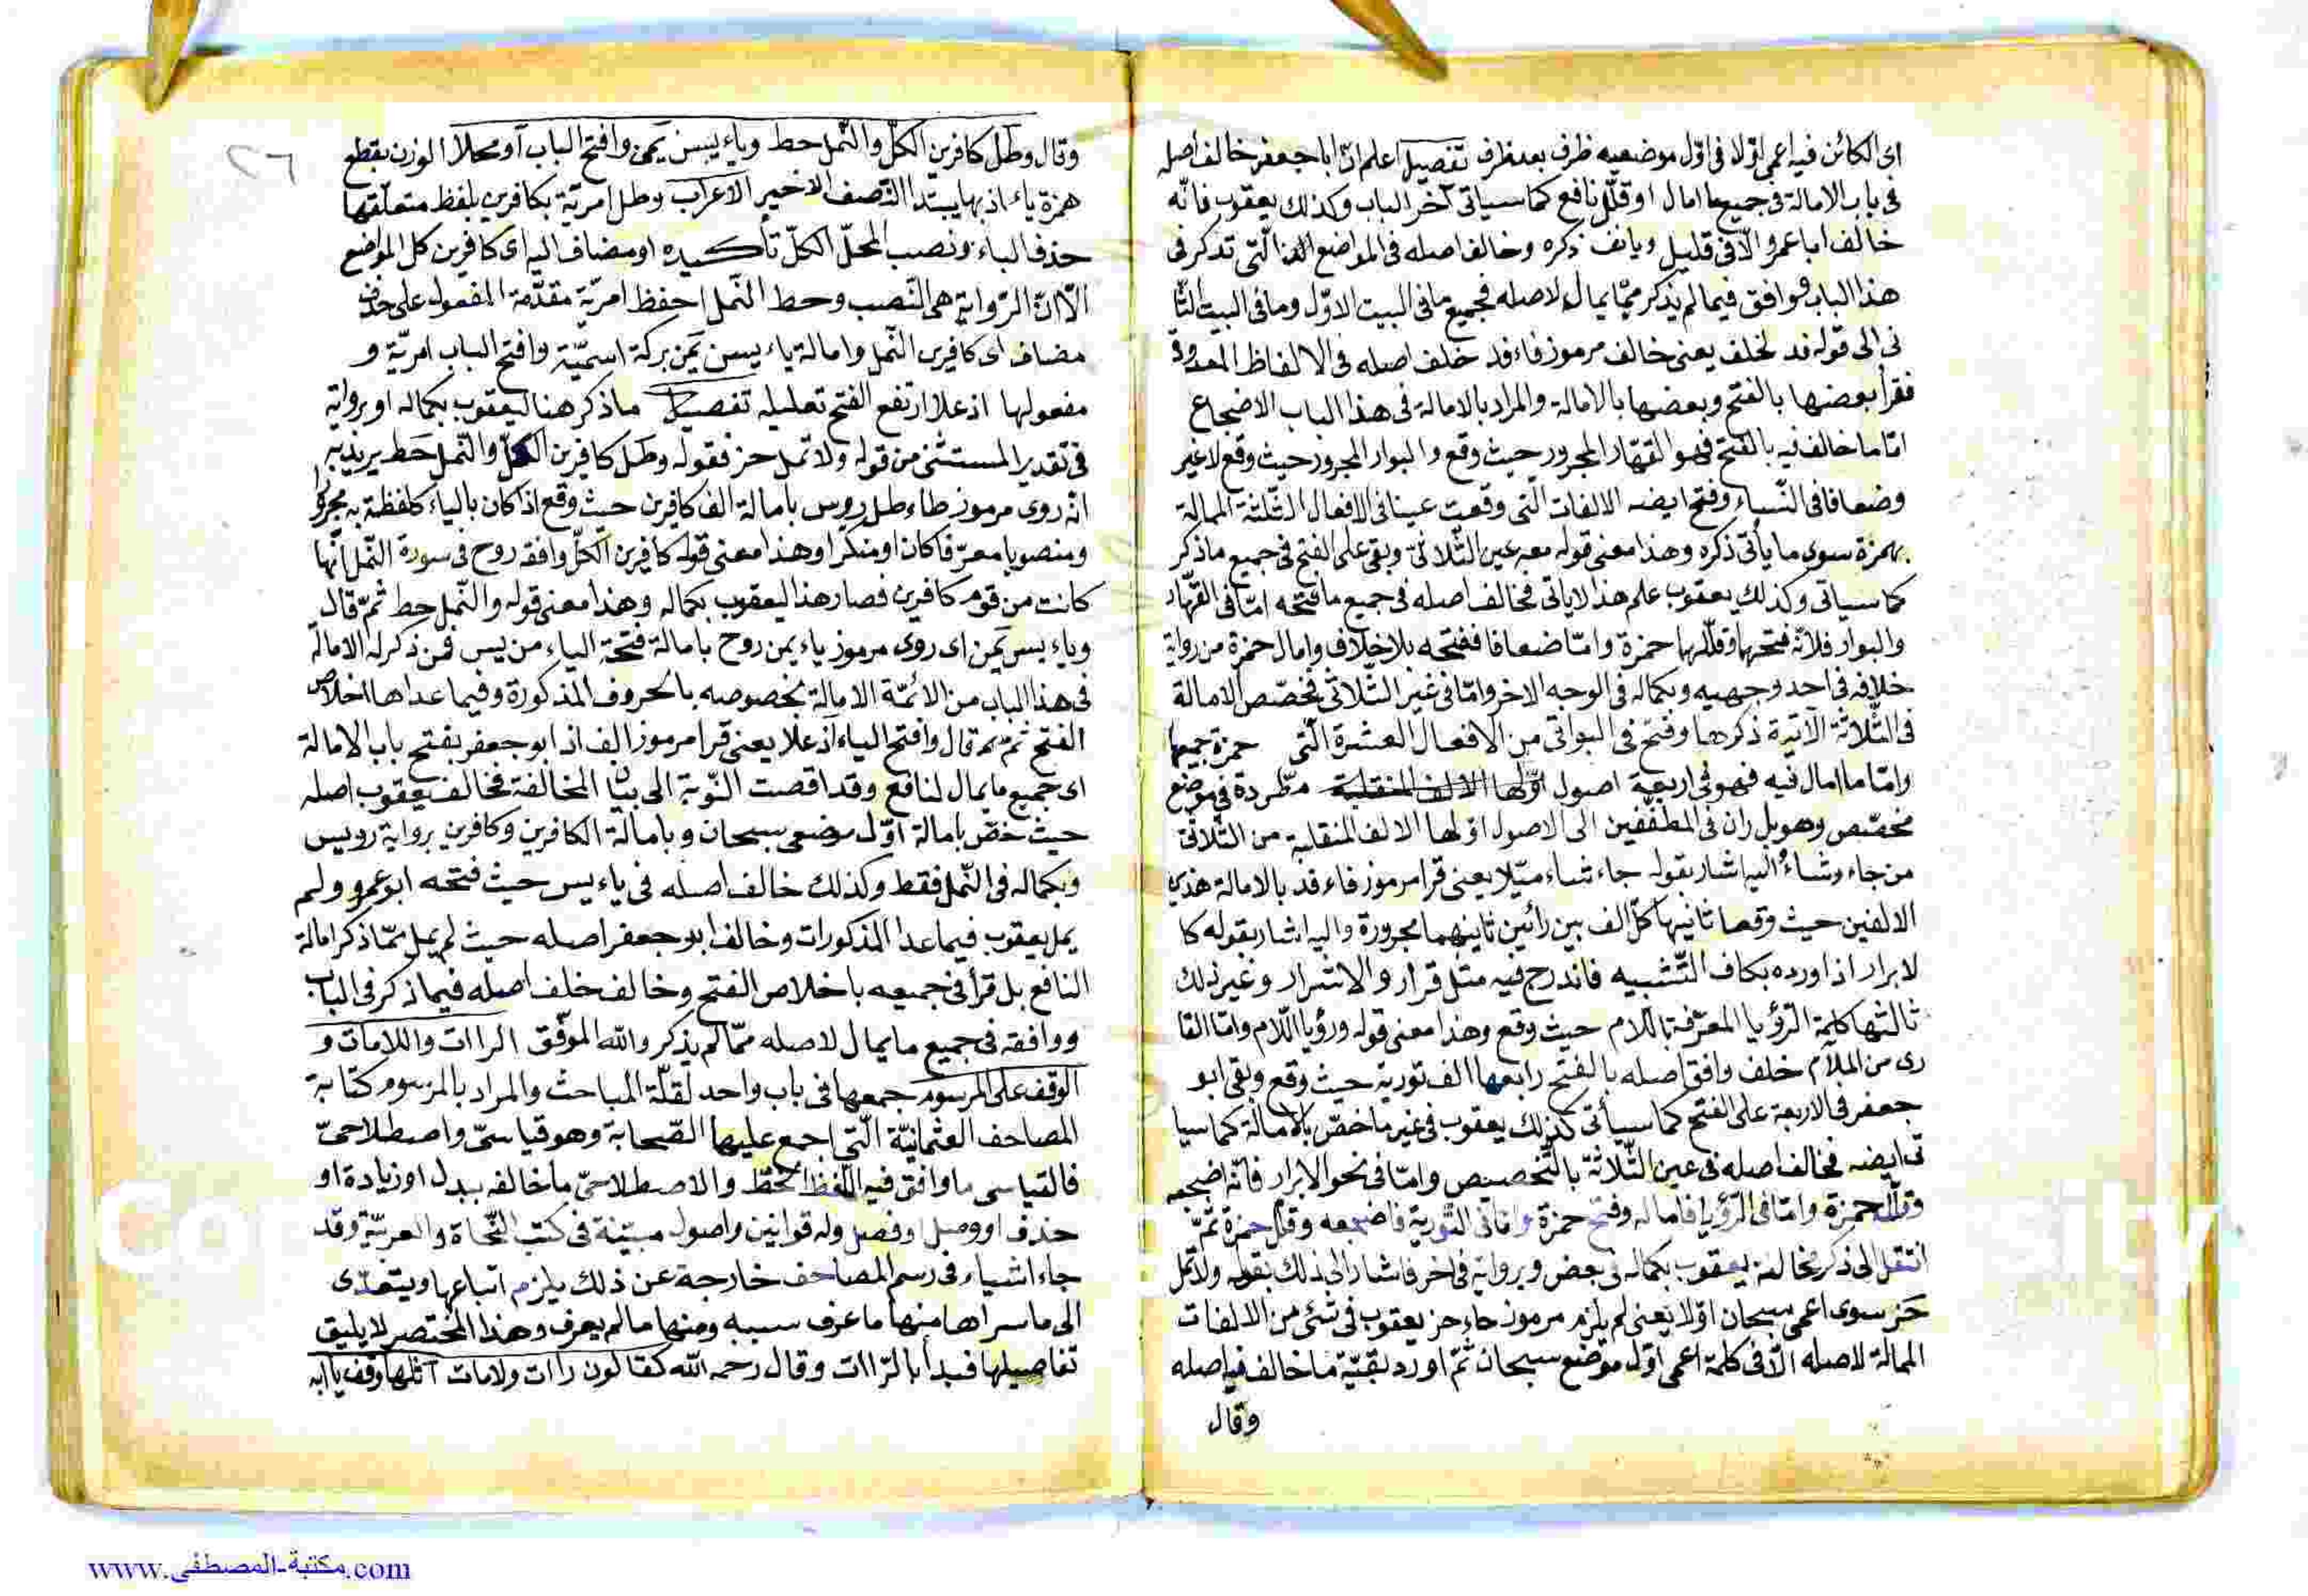 اى الكائن فيه اعمى اوّلا فى اوّل موضعيه ظرف بعد ظرف تفصيل اعلم انّ ابا جعفر خالف اصله
فى باب الامالة فى جميع ما امال او قلّل نافع كما سياتى آخر الباب وكذلك يعقوب فانّه
خالف ابا عمرو الّا فى قليل وياتى ذكره وخالف اصله فى المواضع التى تذكر فى
هذا الباب ووافق فيما لم يذكر ممّا يمال لاصله فجميع ما فى البيت الاوّل وما فى البيت الثا
نى الى قوله فد لخلف يعنى خالف مرموز فاء فد خلف اصله فى الالفاظ المعدودة
فقرأ بعضها بالفتح وبعضها بالامالة والمراد بالامالة فى هذا الباب الاضجاع
امّا ما خالف فيه بالفتح فهو القهّار المجرور حيث وقع والبوار المجرور حيث وقع لا غير
وضعافا فى النّساء وفتح ايضه الالفات الّتى وقعت عينا فى الافعال الثّلثة الممالة
بهمزة سوى ما يأتى ذكره وهذا معنى قوله معه عين الثّلاثى وبقى على الفتح فى جميع ما ذكر
كما سياتى وكذلك يعقوب علم هذا لاياتى فخالف اصله فى جميع ما فتحه امّا فى القهّار
والبوار فلانّه فتحها وقلّلها حمزة وامّا ضعافا ففتحه بلا خلاف وامال حمزة من رواية
خلافه فى احد وجهيه وبكماله فى الوجه الاخر وامّا فى غير الثّلاثى فخصّص الامالة
فى الثّلاثة الآتية ذكرها وفتح فى البواقى من الافعال العشرة الّتى حمزة جميعها
وامّا ما امال فيه فهو فى اربعة اصول اوّلها الالف المنقلبة مطّردة فى موضع
مخصّص وهو بل ران فى المطفّفين الى الاصول اوّلها الالف المنقلبة من الثّلاثى
من جاء وشاء اليه اشار بقوله جاء شاء ميّلا يعنى قرا مرموز فاء فد بالامالة هذين
الالفين حيث وقعا ثانيها كلّ الف بين رائين ثانيهما مجرورة واليه اشار بقوله كا
لابرار اذ اورده بكاف التّشبيه فاندرج فيه مثل قرار والاشرار وغير ذلك
ثالثها كلمة الرّؤيا المعرّفة باللام حيث وقع وهذا معنى قوله ورؤيا اللّام وامّا العا
رى من اللّام خلف وافق اصله بالفتح رابعها الف تورية حيث وقع وبقى ابو
جعفر فى الاربعة على الفتح كما سيأتى كذلك يعقوب فى غير ما خصّ بالامالة كما سيا
تى ايضه فخالف اصله فى عين الثّلاثة بالتّخصيص وامّا فى نحو الابرار فانّه اضجعه
وقلّله حمزة وامّا فى الرّؤيا فاماله وفتح حمزة وامّا فى التّورية فاضجعه وقلّل حمزة ثمّ
انتقل الى ذكر مخالفة يعقوب بكماله فى بعض وبرواية فى اخر فاشار الى ذلك بقوله ولا تمل
حز سوى اعمى سبحان اوّلا يعنى لم يلزم مرموز حاء حز يعقوب فى شئ من الالفات
الممالة لاصله الّا فى كلمة اعمى اوّل موضع سبحان ثمّ اورد بقيّة ما خالف فيه اصله
وقال
٢٦
وقال وطل كافرين الكلّ والنّمل حط وياء يسن يمن وافتح الباب او محلا الوزن بقطع
همزة ياء اذ بها يبتدا النّصف الاخير الاعراب وطل امريّة بكافرين بلفظ متعلّقها
حذف الباء ونصب المحلّ الكلّ تأكيده او مضاف اليه اى كافرين كل المواضع
الّا انّ الرّواية هى النّصب وحط النّمل احفظ امريّة مقدّمة المفعول على حذف
مضاف اى كافرين النّمل وامالة ياء يسن يمن بركة اسميّة وافتح الباب امريّة و
مفعولها اذ علا ارتفع الفتح تعليله تفصيل ما ذكر هنا ليعقوب بكماله او برواية
فى تقدير المستثنى من قوله ولا تمل حز فقوله وطل كافرين الكلّ والنّمل حط يريد به
انّه روى مرموز طاء طل رويس بامالة الف كافرين حيث وقع اذا كان بالياء كلفظة به مجرورا
ومنصوبا معرّفا كان او منكّرا وهذا معنى قوله كافرين الكلّ وافقه روح فى سورة النّمل انّها
كانت من قوم كافرين فصار هذا ليعقوب بكماله وهذا معنى قوله والنّمل حط ثمّ قال
وياء يسن يمن اى روى مرموز ياء يمن روح بامالة فتحة الياء من يس فمن ذكر له الامالة
فى هذا الباب من الائمّة الامالة بخصوصه بالحروف المذكورة وفيما عداها اخلاص
الفتح ثمّ ثم قال وافتح الباء اذ علا يعنى قرا مرموز الف اذ ابو جعفر بفتح باب الامالة
اى جميع ما يمال لنافع وقد اقصت النّوبة الى بيان المخالفة فخالف يعقوب اصله
حيث خصّ بامالة اوّل موضعى سبحان وبامالة الكافرين وكافرين برواية رويس
وبكماله فى النّمل فقط وكذلك خالف اصله فى ياء يس حيث فتحه ابو عمرو ولم
يمل يعقوب فيما عدا المذكورات وخالف ابو جعفر اصله حيث لم يمل ممّا ذكر امالة
النافع بل قرأ فى جميعه باخلاص الفتح وخالف خلف اصله فيما ذكر فى الباب
ووافقه فى جميع ما يمال لاصله ممّا لم يذكر والله الموفّق الراات واللامات و
الوقف على المرسوم جمعها فى باب واحد لقلّة المباحث والمراد بالمرسوم كتابة
المصاحف العثمانيّة الّتى اجمع عليها الصّحابة وهو قياسىّ واصطلاحىّ
فالقياسى ما وافق فيه اللّفظ الخطّ والاصطلاحىّ ما خالفه ببدل او زيادة او
حذف او وصل او فصل وله قوانين واصول مبيّنة فى كتب النّحاة والعربيّة وقد
جاء اشياء فى رسم المصاحف خارجة عن ذلك يلزم اتباعها ويتعدّى
الى ما سراها منها ما عرف سببه ومنها ما لم يعرف وهذا المختصر لا يليق
تفاصيلها فبدأ بالرّاات وقال رحمه الله كقالون راات ولامات اتلها وقف يا ابه
www.مكتبة-المصطفى.com